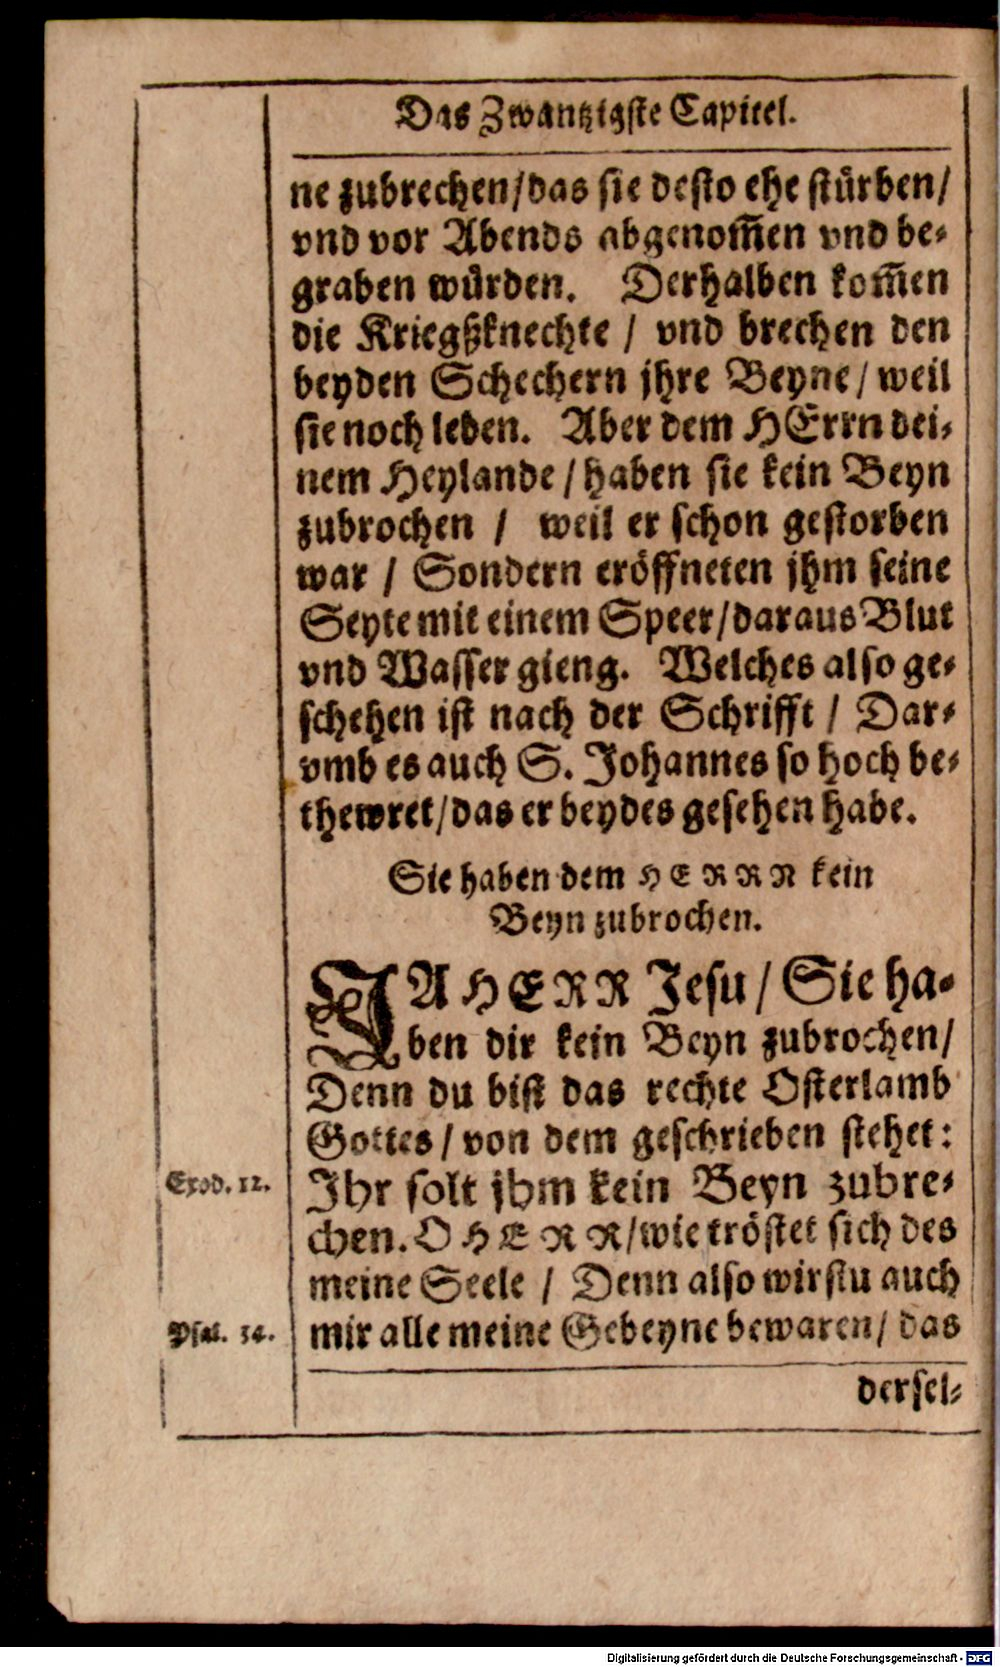 Das Zwantzigste Capitel.
ne zubrechen/das sie desto ehe stürben/
vnd vor Abends abgenom̃en vnd be-
graben würden. Derhalben kom̃en
die Kriegßknechte / vnd brechen den
beyden Schechern jhre Beyne/ weil
sie noch leben. Aber dem HErrn dei-
nem Heylande / haben sie kein Beyn
zubrochen / weil er schon gestorben
war / Sondern eröffneten jhm seine
Seyte mit einem Speer/daraus Blut
vnd Wasser gieng. Welches also ge-
schehen ist nach der Schrifft / Dar-
vmb es auch S. Johannes so hoch be-
thewret/das er beydes gesehen habe.
Sie haben dem HERRN kein
Beyn zubrochen.
JA HERR Jesu/ Sie ha-
ben dir kein Beyn zubrochen/
Denn du bist das rechte Osterlamb
Gottes/ von dem geschrieben stehet:
Exod. 12.
Ihr solt jhm kein Beyn zubre-
chen. O HERR/wie tröstet sich des
meine Seele / Denn also wirstu auch
Psal. 34.
mir alle meine Gebeyne bewaren/ das
dersel-
Digitalisierung gefördert durch die Deutsche Forschungsgemeinschaft - DFG